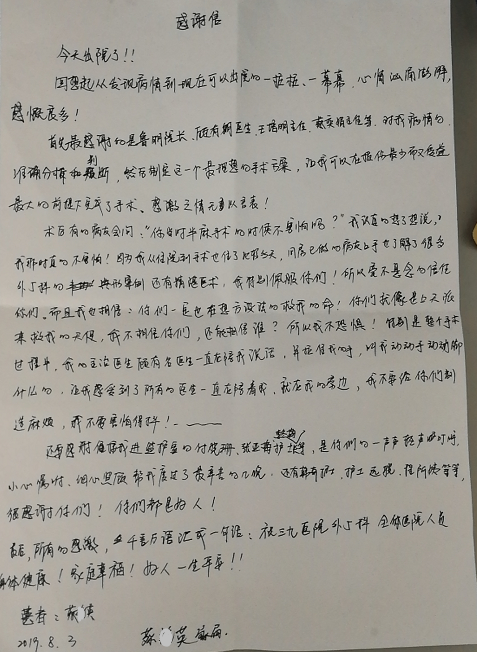 感谢信
今天出院了!!
回想起从发现病情到现在可以出院的一桩桩、一幕幕,心情汹涌澎湃,
感慨良多!
首先最感谢的是鲁明院长、顾有朝医生、王培明主任、主任等,对我病情的
准确分析和判断,然后制定这一个最理想的手术方案,让我可以在损伤最少而受益
最大的前提下完成了手术。感激之情无以言表!
术后有的病友会问:“你当时半麻手术的时候不害怕吗?”我认真的想了想说,
我那时真的不害怕!因为我从住院到手术也住了比较久,同房已做的病友们也了解了很多
外5科的典型案例还有精湛医术,我特别佩服你们!所以爱不悬念的信任
你们。而且我也相信:你们一定也在想方设法的救我的命!你们就像是上天派
来救我的天使,我不相信你们,还能相信谁?所以我不恐惧!特别是整个手术
过程中,我的主治医生顾有名医生一直在陪我说话,并拉住我的手,叫我动动手动动脚
什么的,让我感受到了所有的医生一直在陪着我,就在我的旁边,我不要给你们制
造麻烦,我不要害怕得抖!
还要感谢值班我进监护室的付佩珊、护士等,是你们的一声声轻声叮咛,
小心嘱咐、细心照顾帮我度过了最辛苦的几晚。还有护士、护工阿姨等等,
很感谢你们!你们都是好人!
最后,所有的感激,千言万语汇成一句话:祝三九医院外5科全体医院人员
身体健康!家庭幸福!好人一生平安!!
患者:英
2019.8.3
英